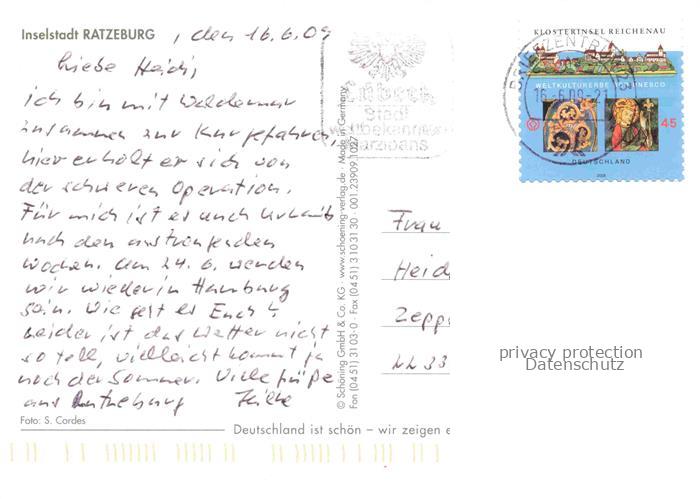 Inselstadt RATZEBURG , den 16.6.09
Liebe Heidi,
ich bin mit Waldemar
zusammen zur Kur gefahren,
hier erholt er sich von
der schweren Operation.
Für mich ist es auch Urlaub
nach den anstrengenden
Wochen. Am 24. 6. werden
wir wieder in Hamburg
sein. Wie geht es Euch?
Leider ist das Wetter nicht
so toll, vielleicht kommt ja
noch der Sommer. Viele Grüße
aus Ratzeburg
Foto: S. Cordes
Deutschland ist schön – wir zeigen e
© Schöning GmbH & Co. KG · www.schoening-verlag.de · Made in Germany
Fon (04 51) 31 03-0 · Fax (04 51) 3 10 31 30 · 001.23909.1027
Lübeck
Stadt
weltbekannten
Marzipans
BRIEFZENTRUM
16.-6.09-21
KLOSTERINSEL REICHENAU
WELTKULTURERBE DER UNESCO
45
DEUTSCHLAND
2008
Frau
Heid
Zepp
privacy protection
Datenschutz